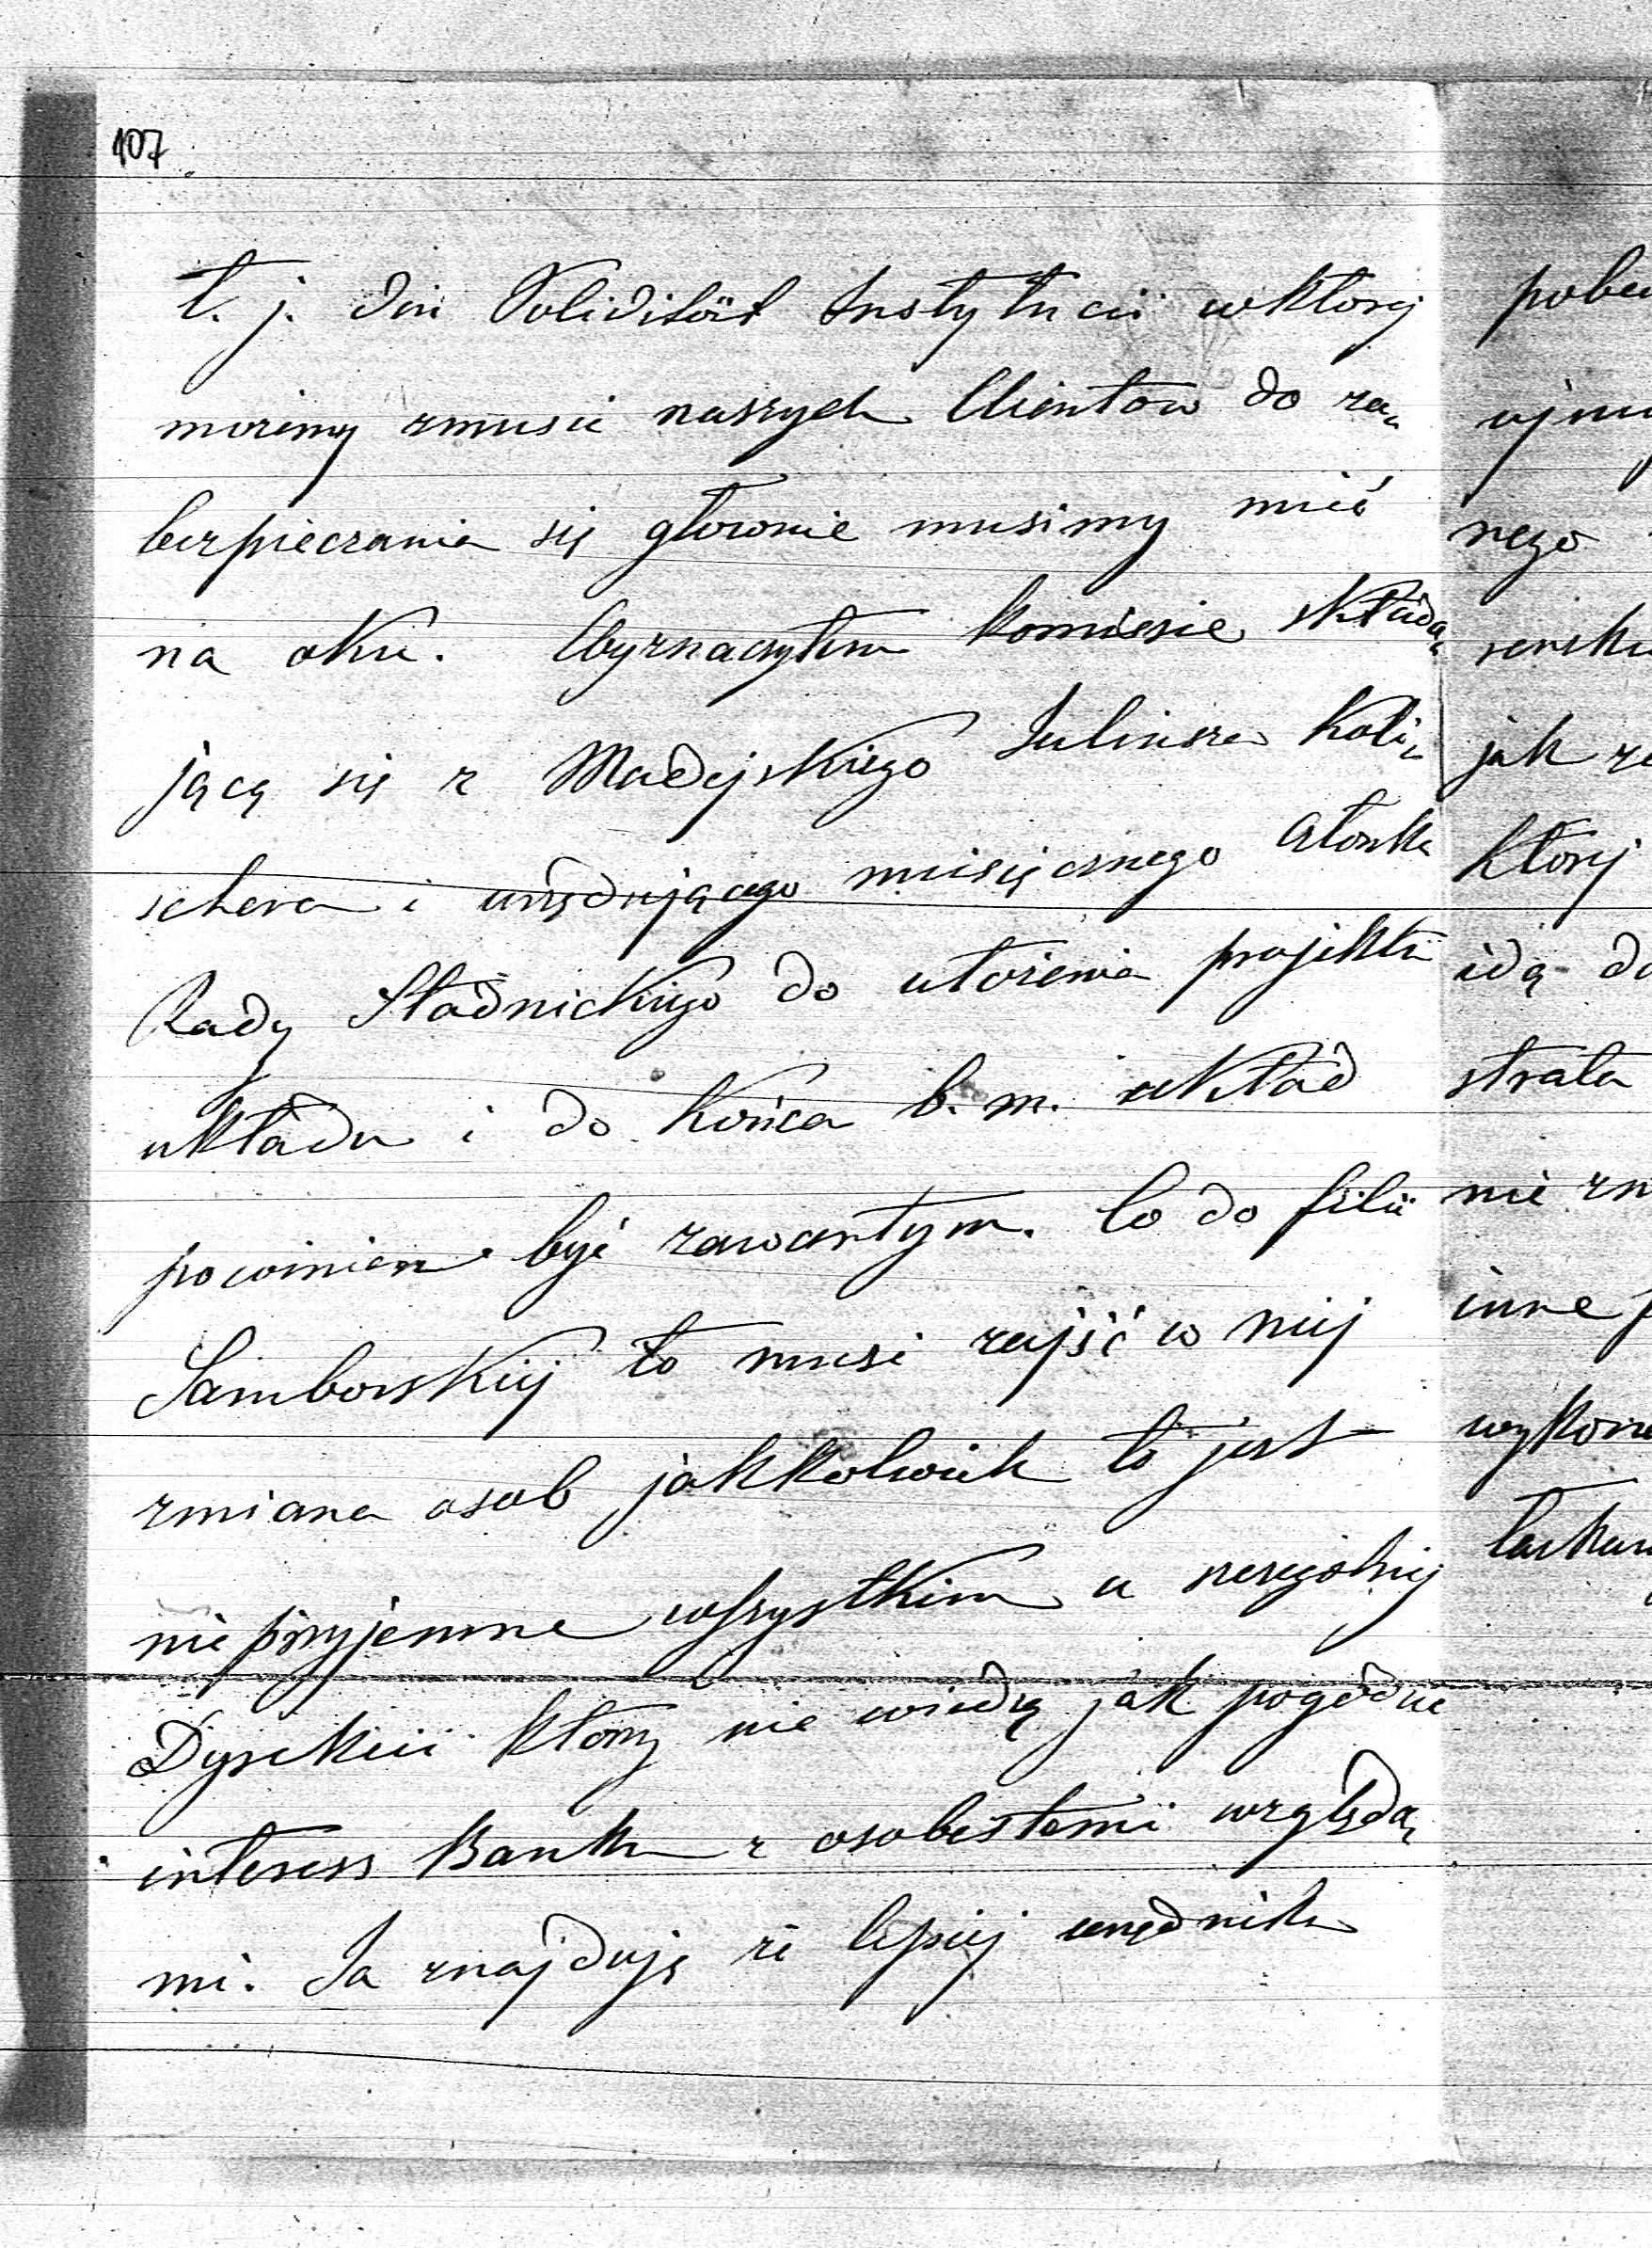 107
t. j. die Solidität Instytucii wktorej
morimy zmusic naszych Clientow do za„
bezpieczania się głownie musimy mieć
na oku. Wyznaczyłem komissie składa„
jącą się z Madejskiego Juliusza Koli„
schera i urzędującego miesięcznego członka
Rady Stadnickiego do ułożenia projektu
układu i do końca b. m. układ
powinien być zawartym. Co do filii
Samborskiej to musi zajść w niej
zmiana osob jakkolwiek to jest
nieprzyjemne wszystkim a szczegolniej
Dyrekcii ktorzy nie wiedzą jak pogodzie
interess Banku z osobistemi względa„
mi. Ja znajduję że lepiej urzędnik
pobu
ujm
nego
jak
ktorej
idą do
strata
nie zm
inne p
wykon